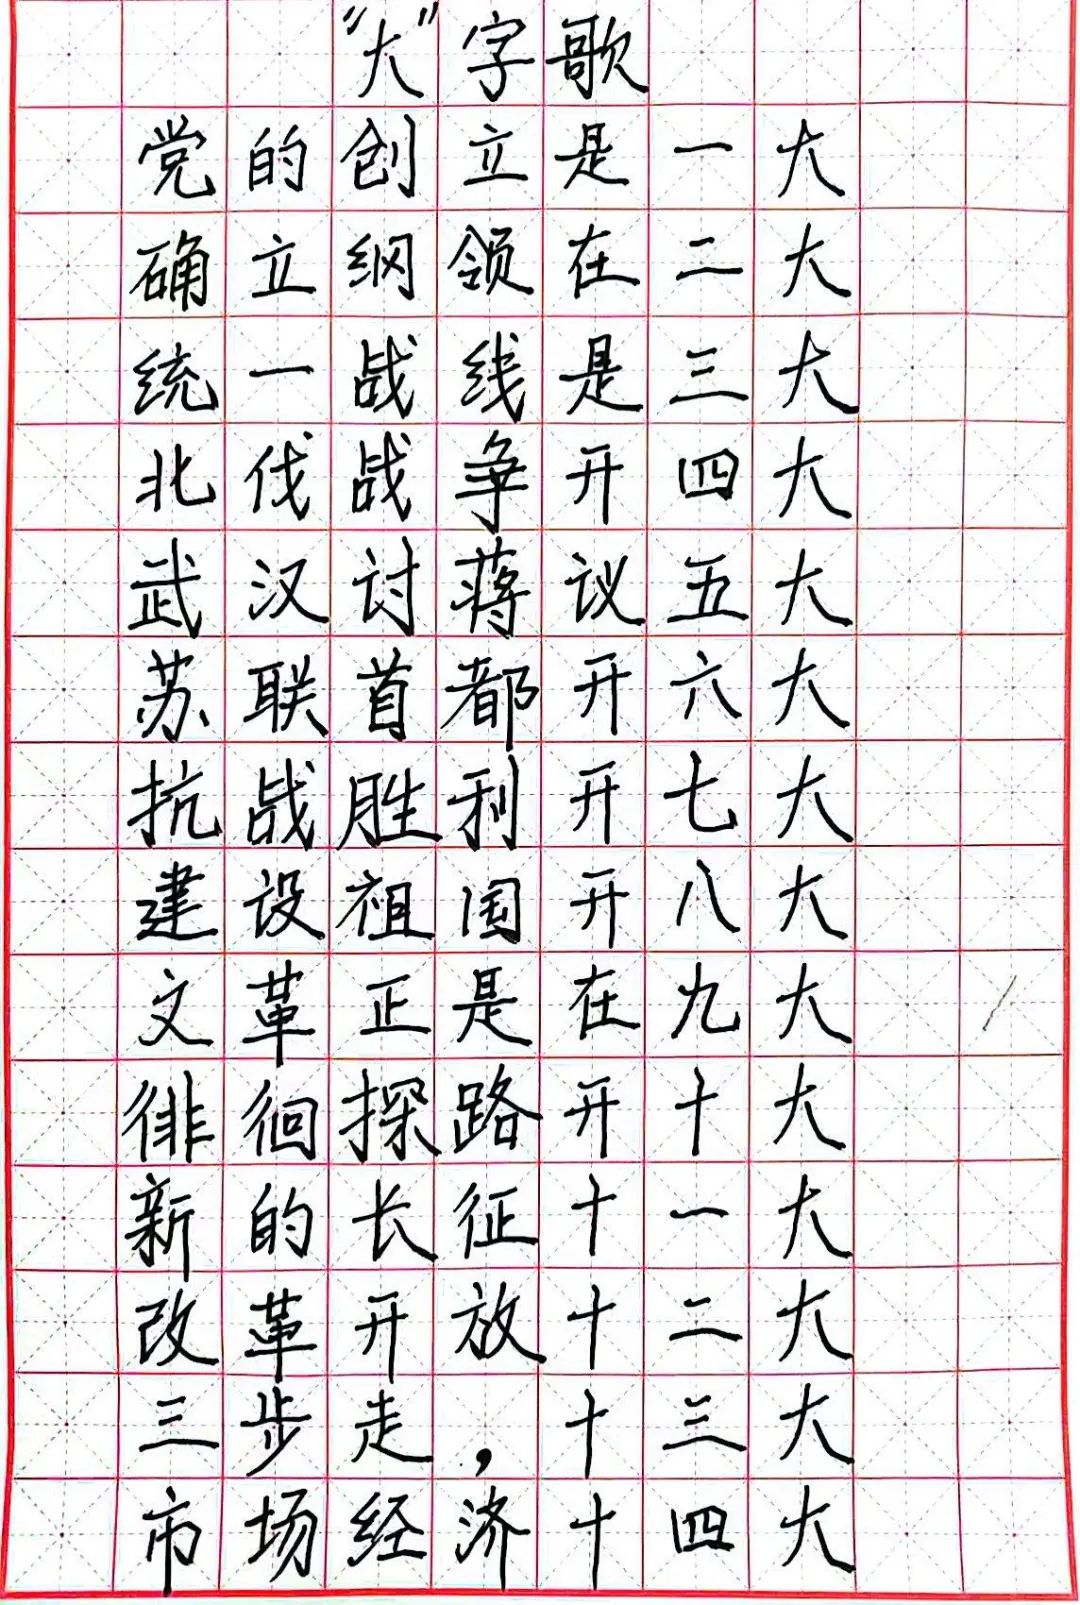 “大”字歌
党的创立是一大
确立纲领在二大
统一战线是三大
北伐战争开四大
武汉讨蒋议五大
苏联首都开六大
抗战胜利开七大
建设祖国开八大
文革正是在九大
徘徊探路开十大
新的长征十一大
改革开放十二大
三步走，十三大
市场经济十四大